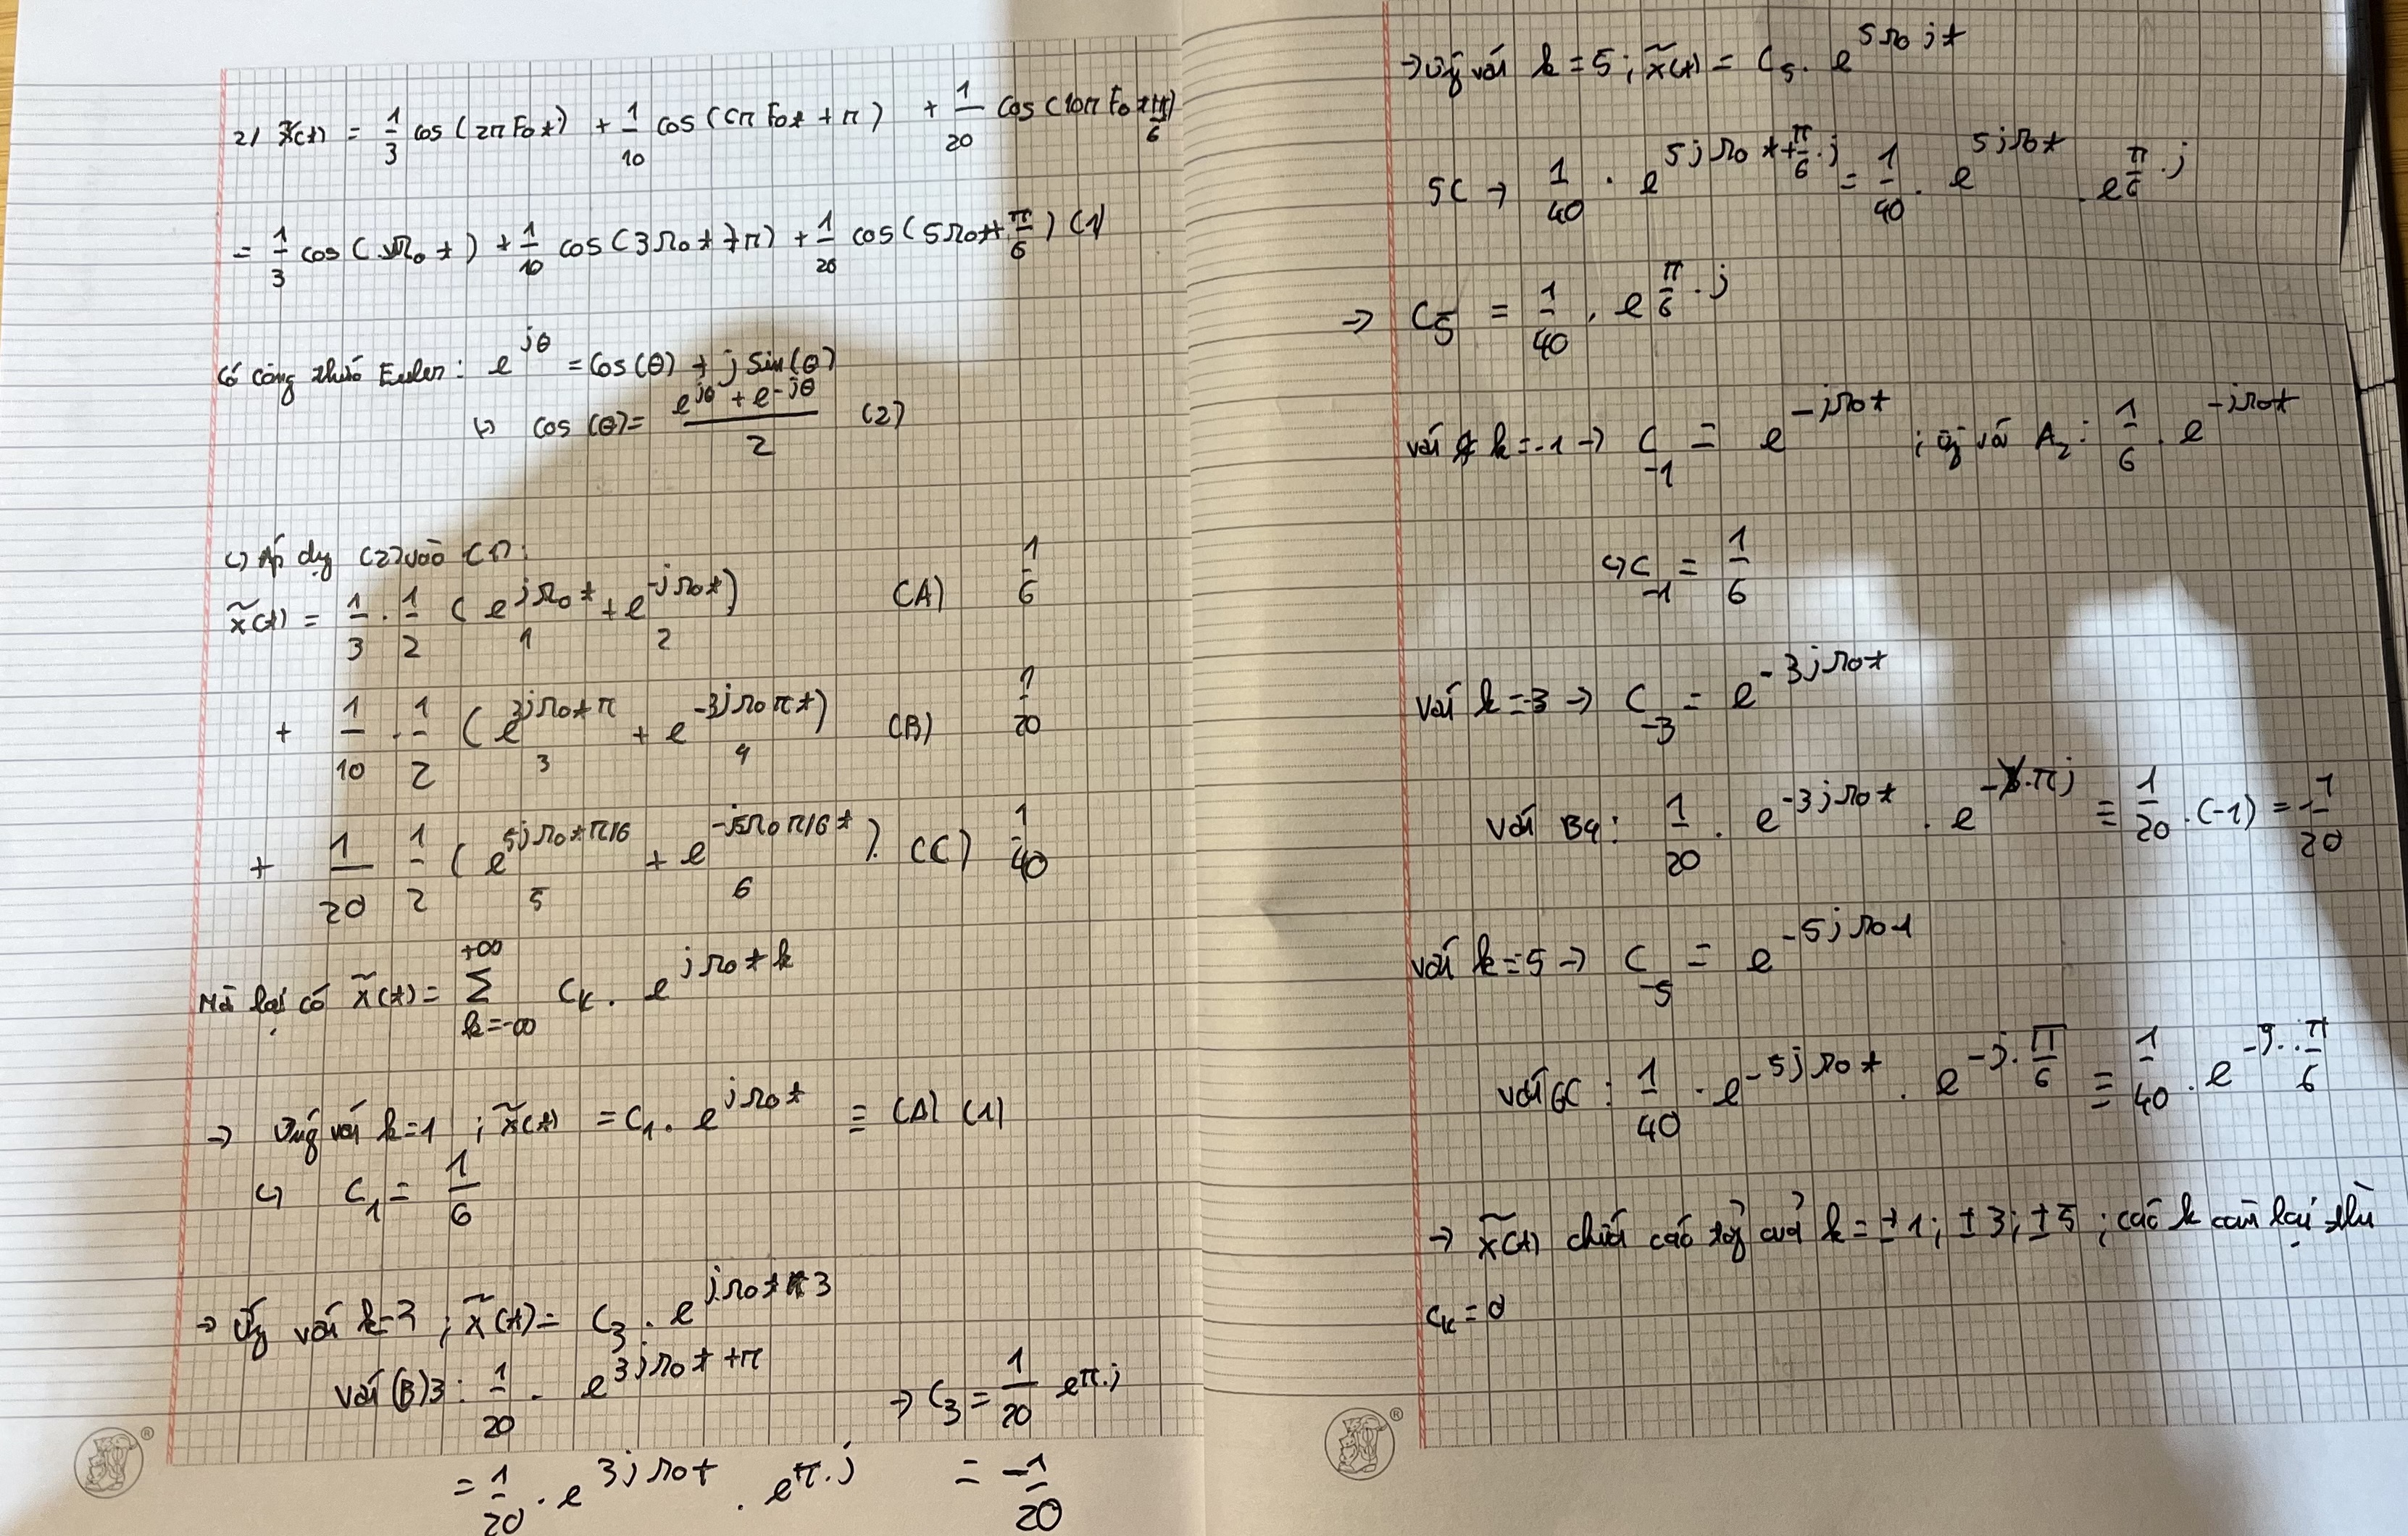 2/ x̃(t) = 1/3 cos(2πF₀t) + 1/10 cos(6πF₀t + π) + 1/20 cos(10πF₀t + π/6)
= 1/3 cos(Ω₀t) + 1/10 cos(3Ω₀t + π) + 1/20 cos(5Ω₀t + π/6) (1)
Có công thức Euler: e^{jθ} = cos(θ) + j sin(θ)
↳ cos(θ) = (e^{jθ} + e^{-jθ})/2 (2)
↳ Áp dụng (2) vào (1):
x̃(t) = 1/3 · 1/2 (e^{jΩ₀t} + e^{-jΩ₀t}) (A) 1/6
1 2
+ 1/10 · 1/2 (e^{3jΩ₀t+π} + e^{-3jΩ₀πt}) (B) 1/20
3 4
+ 1/20 1/2 (e^{5jΩ₀t+π/6} + e^{-j5Ω₀π/6t}). (C) 1/40
5 6
Mà lại có x̃(t) = Σ_{k=-∞}^{+∞} C_k . e^{jΩ₀tk}
→ Ứng với k=1 ; x̃(t) = C₁ . e^{jΩ₀t} ≡ (A) (1)
↳ C₁ = 1/6
→ Ứng với k=3 ; x̃(t) = C₃ . e^{jΩ₀t3}
với (B)3 : 1/20 . e^{3jΩ₀t+π} → C₃ = 1/20 e^{π.j}
= 1/20 . e^{3jΩ₀t} . e^{π.j} = -1/20
→ Ứng với k = 5 ; x̃(t) = C₅ . e^{5Ω₀jt}
5C → 1/40 . e^{5jΩ₀t+π/6.j} = 1/40 . e^{5jΩ₀t} . e^{π/6.j}
⇒ C₅ = 1/40 . e^{π/6.j}
với k=-1 → C₋₁ = e^{-jΩ₀t} ; ứng với A₂ : 1/6 . e^{-jΩ₀t}
↳ C₋₁ = 1/6
với k=-3 → C₋₃ = e^{-3jΩ₀t}
với B4 : 1/20 . e^{-3jΩ₀t} . e^{-πj} ≡ 1/20 . (-1) = -1/20
với k=-5 → C₋₅ = e^{-5jΩ₀t}
với 6C : 1/40 . e^{-5jΩ₀t} . e^{-j.π/6} ≡ 1/40 . e^{-j.π/6}
→ x̃(t) chứa các của k = ±1 ; ±3 ; ±5 ; các k còn lại thì
C_k = 0